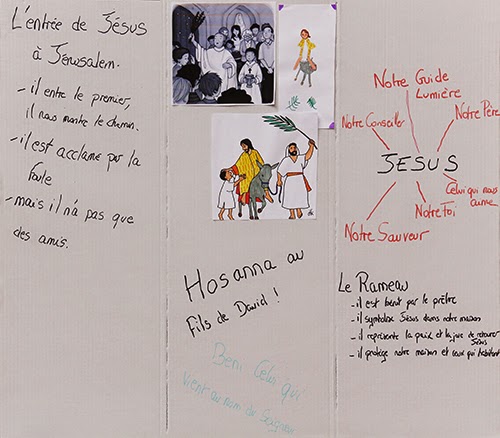 L'entrée de Jésus
à Jérusalem.
- il entre le premier,
il nous montre le chemin.
- il est acclamé par la
foule
- mais il n'a pas que
des amis.
Hosanna au
Fils de David !
Béni Celui qui
vient au nom du Seigneur
Notre Guide
Lumière
Notre Père
Notre Conseiller
JESUS
Celui qui nous
aime
Notre Foi
Notre Sauveur
Le Rameau
- il est béni par le prêtre
- il symbolise Jésus dans notre maison
- il représente la paix et la joie de retrouver
Jésus
- il protège notre maison et ceux qui habitent